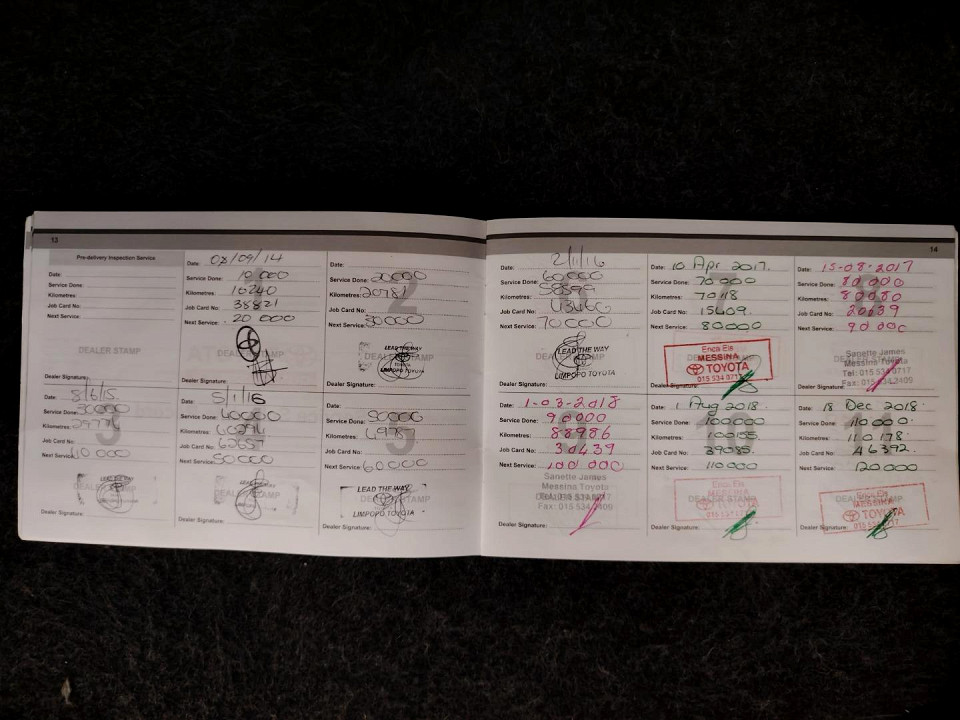 13
Pre-delivery Inspection Service
Date:
Service Done:
Kilometres:
Job Card No:
Next Service:
DEALER STAMP
Dealer Signature:
Date: 08/09/14
Service Done: 10 000
Kilometres: 10240
Job Card No: 38821
Next Service: 20 000
DEALER STAMP
Dealer Signature:
Date:
Service Done: 20000
Kilometres: 20781
Job Card No:
Next Service: 30000
LEAD THE WAY
DEALER STAMP
LIMPOPO TOYOTA
Dealer Signature:
Date: 8/6/15
Service Done: 30000
Kilometres:
Job Card No:
Next Service: 40 000
DEALER STAMP
Dealer Signature:
Date: 5/1/16
Service Done: 40000
Kilometres:
Job Card No:
Next Service: 50000
DEALER STAMP
Dealer Signature:
Date:
Service Done: 50000
Kilometres:
Job Card No:
Next Service: 60000
LEAD THE WAY
DEALER STAMP
LIMPOPO TOYOTA
Dealer Signature:
14
Date: 2/11/16
Service Done: 60000
Kilometres: 58599
Job Card No:
Next Service: 70000
LEAD THE WAY
DEALER STAMP
LIMPOPO TOYOTA
Dealer Signature:
Date: 10 Apr 2017.
Service Done: 70000
Kilometres: 70118
Job Card No: 15609.
Next Service: 80000
Enca Els
MESSINA
TOYOTA
015 534 0717
Dealer Signature:
Date: 15-08-2017
Service Done: 80 000
Kilometres: 80080
Job Card No: 20239
Next Service: 90 000
Sanette James
Messina Toyota
Tel: 015 534 0717
Fax: 015 534 2409
Dealer Signature:
Date: 1-03-2018
Service Done: 90000
Kilometres: 88986
Job Card No: 30439
Next Service: 100 000
Sanette James
Messina Toyota
Tel: 015 534 0717
Fax: 015 534 2409
Dealer Signature:
Date: 1 Aug 2018.
Service Done: 100000
Kilometres: 100155
Job Card No: 39085.
Next Service: 110000
Enca Els
MESSINA
DEALER STAMP
TOYOTA
015 534 0717
Dealer Signature:
Date: 18 Dec 2018.
Service Done: 110 000
Kilometres: 110 178.
Job Card No: A6392.
Next Service: 120000
Enca Els
DEALER STAMP
MESSINA
TOYOTA
015 534 0717
Dealer Signature: